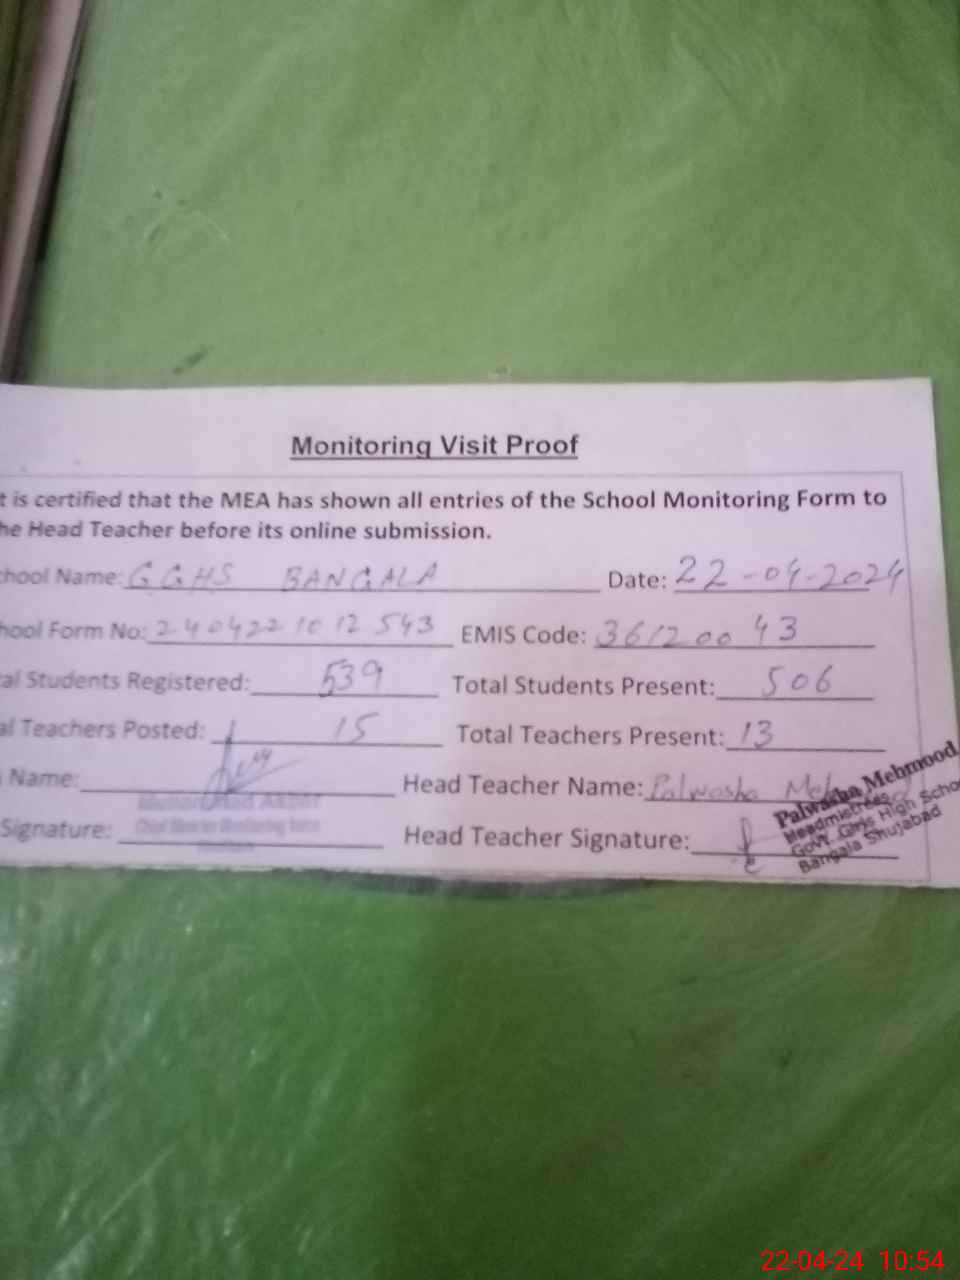 Monitoring Visit Proof
t is certified that the MEA has shown all entries of the School Monitoring Form to
he Head Teacher before its online submission.
chool Name: GGHS BANGALA Date: 22-04-2024
hool Form No: 240422 10 12 543 EMIS Code: 361200 43
al Students Registered: 539 Total Students Present: 506
al Teachers Posted: 15 Total Teachers Present: 13
Name: Head Teacher Name: Palwasha
Signature: Head Teacher Signature:
Palwasha Mehmood
Headmistress
Govt. Girls High Schoo
Bangala Shujabad
22-04-24 10:54